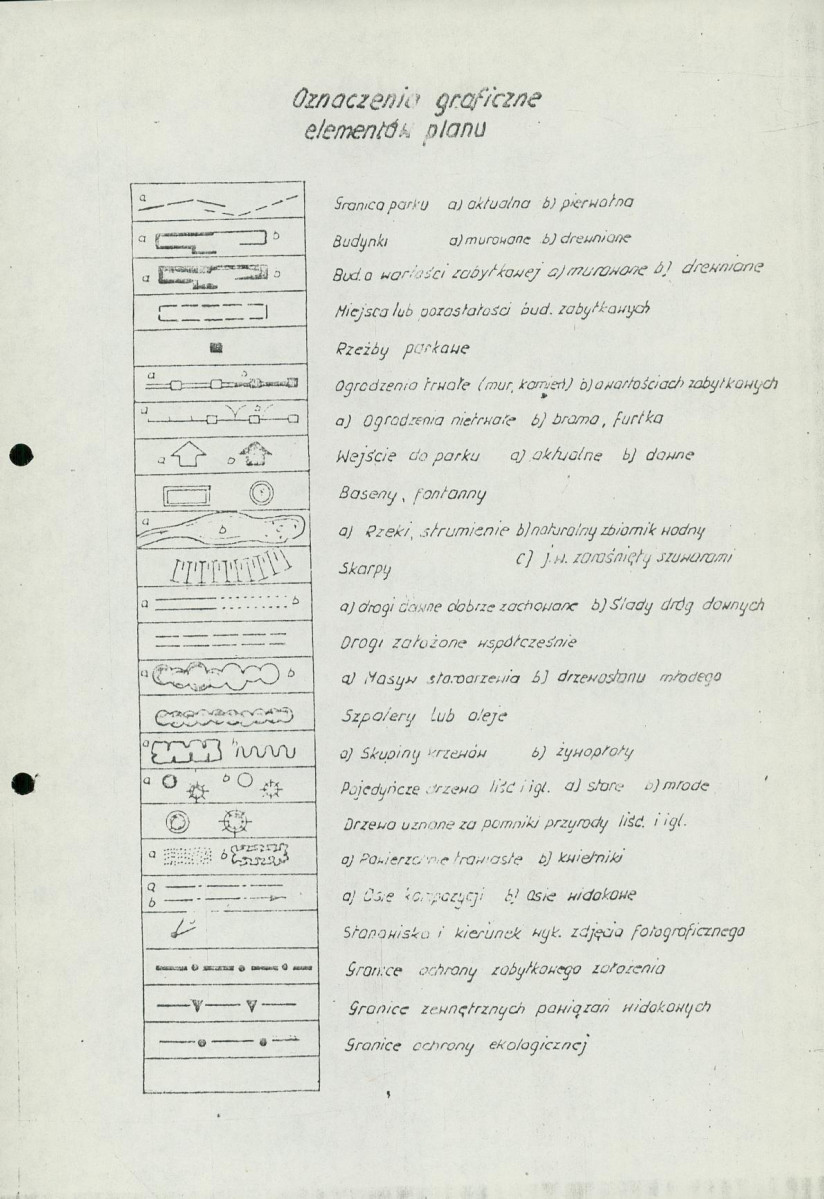 Oznaczenia graficzne
elementów planu
a Granica parku a) aktualna b) pierwotna
a b Budynki a) murowane b) drewniane
a b Bud. o wartości zabytkowej a) murowane b) drewniane
Miejsca lub pozostałości bud. zabytkowych
Rzeźby parkowe
a b Ogrodzenia trwałe (mur, kamień) b) o wartościach zabytkowych
a b a) Ogrodzenia nietrwałe b) brama, furtka
a b Wejście do parku a) aktualne b) dawne
Baseny, fontanny
a b a) Rzeki, strumienie b) naturalny zbiornik wodny
c) j.w. zarośnięty szuwarami
Skarpy
a b a) drogi dawne dobrze zachowane b) Ślady dróg dawnych
Drogi założone współcześnie
a b a) Masyw starodrzewia b) drzewostanu młodego
Szpalery lub aleje
a b a) Skupiny krzewów b) żywopłoty
a b Pojedyńcze drzewa liść i igl. a) stare b) młode
Drzewa uznane za pomniki przyrody liść. i igl.
a b a) Powierzchnie trawiaste b) kwietniki
a
b a) Osie kompozycji b) osie widokowe
Stanowiska i kierunek wyk. zdjęcia fotograficznego
Granice ochrony zabytkowego założenia
Granice zewnętrznych powiązań widokowych
Granice ochrony ekologicznej